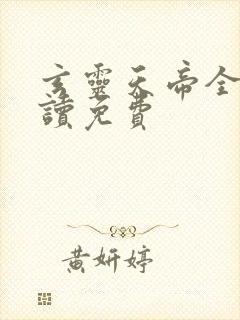 玄靈天帝全
讀免費
黃妍婷